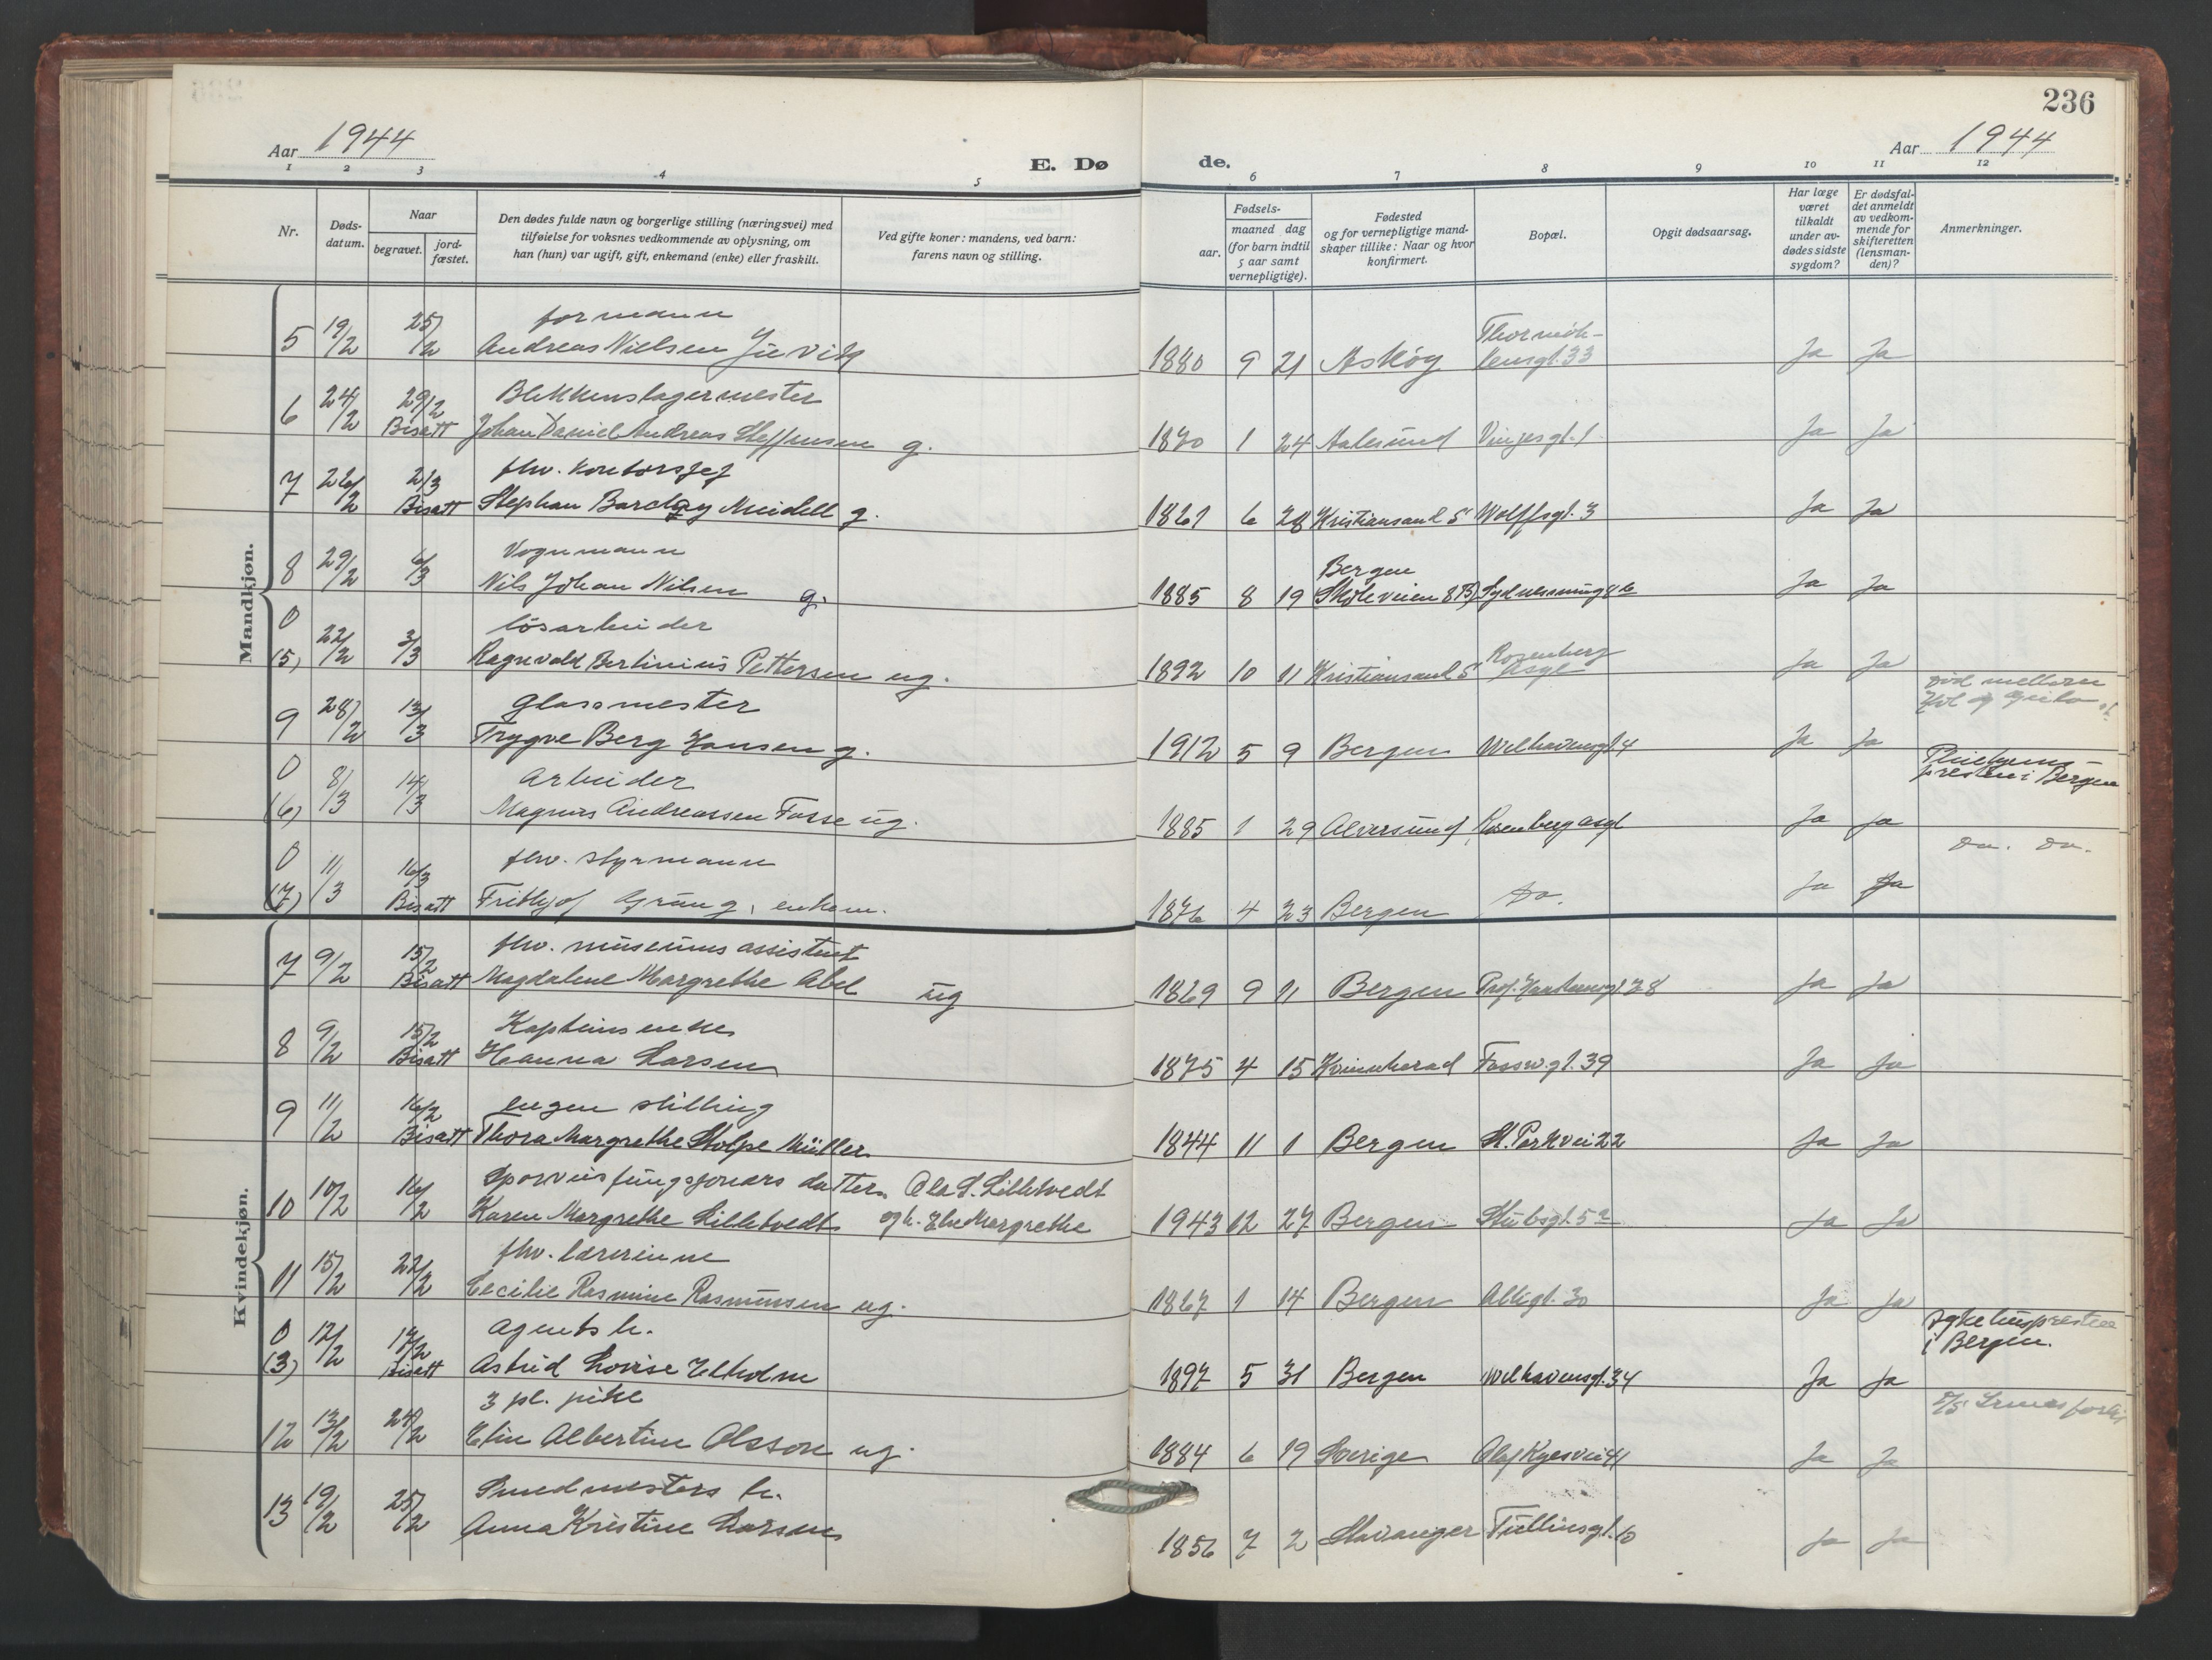 236
Aar 1944
E. Dø
de.
Aar 1944
1 2 3 4 5 6 7 8 9 10 11 12
Nr.
Døds-
datum.
Naar
begravet.
jord-
fæstet.
Den dødes fulde navn og borgerlige stilling (næringsvei) med
tilføielse for voksnes vedkommende av oplysning, om
han (hun) var ugift, gift, enkemand (enke) eller fraskilt.
Ved gifte koner: mandens, ved barn:
farens navn og stilling.
Fødsels-
aar.
maaned dag
(for barn indtil
5 aar samt
vernepligtige).
Fødested
og for vernepligtige mand-
skaper tillike: Naar og hvor
konfirmert.
Bopæl.
Opgit dødsaarsag.
Har læge
været
tilkaldt
under av-
dødes sidste
sygdom?
Er dødsfal-
det anmeldt
av vedkom-
mende for
skifteretten
(lensman-
den)?
Anmerkninger.
Mandkjøn.
formann
5 19/2 25/2 Andreas Nielsen Juvik 1880 9 21 Askøy Thormøh-
lensgt. 33 Ja Ja
Blikkenslagermester
6 24/2 29/2 Bisatt Johan Daniel Andreas Steffensen g. 1870 1 24 Aalesund Vinjesgt. 1 Ja Ja
fhv. kontorsjef
7 26/2 2/3 Bisatt Stephan Barclay Meidell g. 1861 6 28 Kristiansand S Wolffsgt. 3 Ja Ja
Vognmann
8 29/2 6/3 Nils Johan Nilsen g. 1885 8 19 Bergen
Ja Ja
løsarbeider
0 (5) 22/2 3/3 Ragnvald Bertinius Pettersen ug. 1892 10 11 Kristiansand S Rosenberg
Asyl Ja Ja
glassmester
9 28/2 13/3 Trygve Berg Hansen g. 1912 5 9 Bergen Welhavensgt. 4 Ja Ja
død mellem
Arbeider
0 (6) 8/3 14/3 Magnus Andreassen Fosse ug. 1885 1 29 Alversund Rosenberg asyl Ja Ja
presten i Bergen
fhv. styrmann
0 (7) 11/3 16/3 Bisatt Frithjof Grung, enkem. 1876 4 23 Bergen Do. Ja Ja
Do. Do.
Kvindekjøn.
fhv. museums assistent
7 9/2 15/2 Bisatt Magdalene Margrethe Abel ug 1869 9 11 Bergen Ja Ja
Kapteins enke
8 9/2 15/2 Bisatt Hanna Larsen 1875 4 15 Kvinnherad Fossw.gt. 39 Ja Ja
ingen stilling
9 11/2 16/2 Bisatt Thora Margrethe Stolpe Müller 1844 11 1 Bergen St. Parkvei 22 Ja Ja
Sporveisfungsjonærs datter Ola S. Lilletvedt
10 10/2 16/2 Karen Margrethe Lilletvedt og h. Else Margrethe 1943 12 27 Bergen Stubsgt. 5 Ja Ja
fhv. lærerinne
11 15/2 22/2 Cecilie Rasmine Rasmussen ug. 1867 1 14 Bergen Allégt. 30 Ja Ja
agents h.
0 (3) 12/2 17/2 Bisatt Astrid Lovise Elholm 1897 5 31 Bergen Welhavensgt. 34 Ja Ja
sykehuspresten
i Bergen.
3 pl. pike
12 13/2 24/2 Elin Albertine Olsson ug. 1884 6 19 Sverige Olaf Ryesvei 41 Ja Ja
Smedmesters h.
13 19/2 25/2 Anna Kristine Larsen 1856 7 2 Stavanger Tullinsgt. 10 Ja Ja